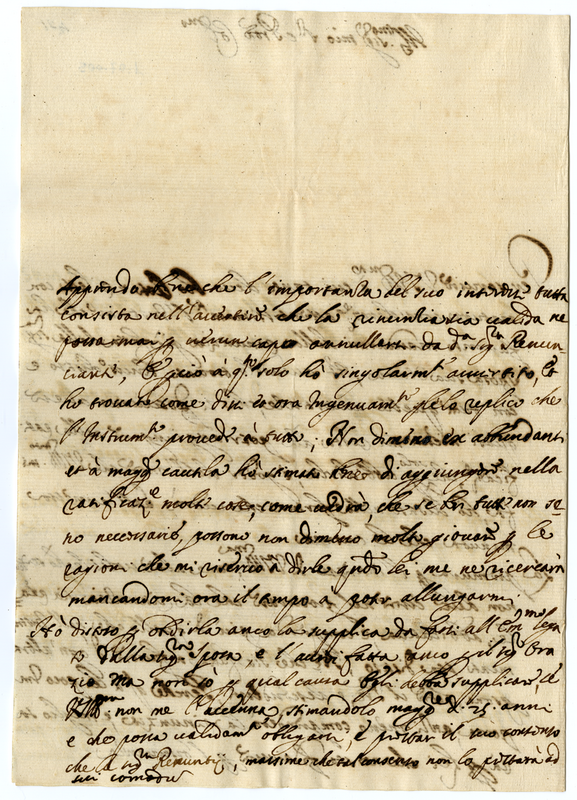 Apprendo bene che l'importanza del suo interesse tutta
consista nell'avertire che la renuntia sia valida ne
possa mai p verun capo annullarsi da d.ª Sig.ra Renun
ciante, e perciò à q.to solo hò singolarm.te avvertito, et
ho trovato come dissi et ora ingenuam.te glelo replico che
l'Instrum.to provede à tutto; Non dimeno ex abundanti
et à magg.r cautela hò stimato bene di aggiungere nella
ratificaz.e molte cose, come vedrà, che se ben tutte non so
no necessarie, possono non dimeno molto giovare p le
ragioni che mi riserbo à dirle q.do lei me ne ricercarà
mancandomi ora il tempo à poter allungarmi.
Hò disteso p obedirla anco la supplica da farsi all'Em.mo lega
to dalla sig.ra Sposa, e l'averei fatta anco p il sig.r Ora
zio ma non sò p qual causa Egli debba supplicare
non me l'accenna, stimandolo magg.re d. 25 anni
e che possa validam.te obligarsi, e prestar il suo consenso
che la sig.ra Renuntij, massime che tal consenso non lo prestarà ad
suì comodum